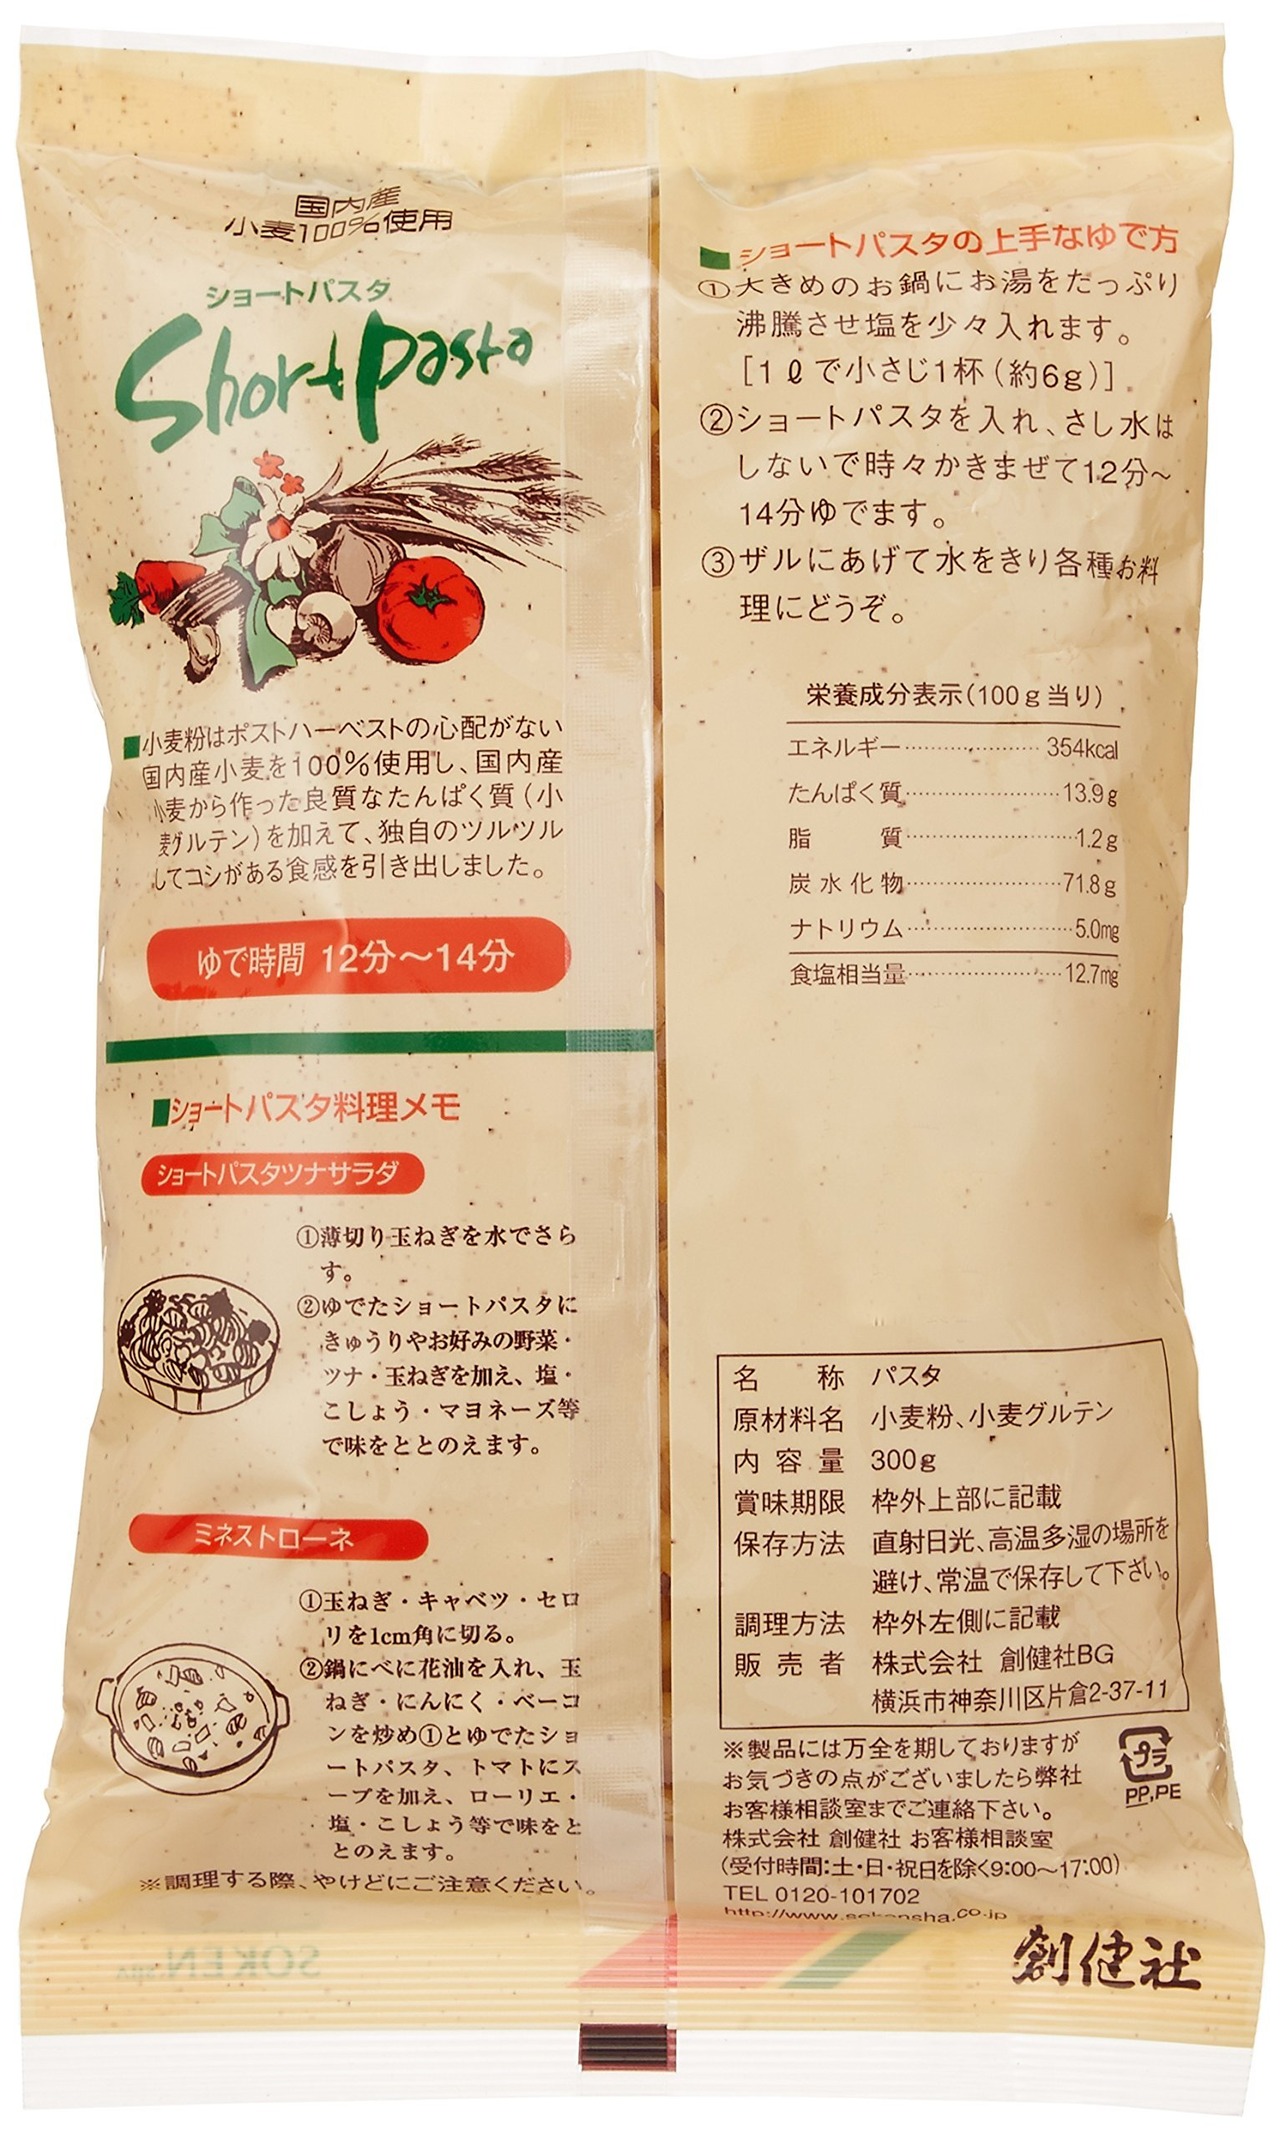 国内産
小麦100%使用
ショートパスタ
Short Pasta
■小麦粉はポストハーベストの心配がない
国内産小麦を100%使用し、国内産
小麦から作った良質なたんぱく質(小
麦グルテン)を加えて、独自のツルツル
してコシがある食感を引き出しました。
ゆで時間 12分〜14分
■ショートパスタ料理メモ
ショートパスタツナサラダ
①薄切り玉ねぎを水でさら
す。
②ゆでたショートパスタに
きゅうりやお好みの野菜・
ツナ・玉ねぎを加え、塩・
こしょう・マヨネーズ等
で味をととのえます。
ミネストローネ
①玉ねぎ・キャベツ・セロ
リを1cm角に切る。
②鍋にべに花油を入れ、玉
ねぎ・にんにく・ベーコ
ンを炒め①とゆでたショ
ートパスタ、トマトにス
ープを加え、ローリエ・
塩・こしょう等で味をと
とのえます。
※調理する際、やけどにご注意ください。
■ショートパスタの上手なゆで方
①大きめのお鍋にお湯をたっぷり
沸騰させ塩を少々入れます。
[1ℓで小さじ1杯(約6g)]
②ショートパスタを入れ、さし水は
しないで時々かきまぜて12分〜
14分ゆでます。
③ザルにあげて水をきり各種お料
理にどうぞ。
栄養成分表示(100g当り)
エネルギー 354kcal
たんぱく質 13.9g
脂質 1.2g
炭水化物 71.8g
ナトリウム 5.0mg
食塩相当量 12.7mg
名称 パスタ
原材料名 小麦粉、小麦グルテン
内容量 300g
賞味期限 枠外上部に記載
保存方法 直射日光、高温多湿の場所を
避け、常温で保存して下さい。
調理方法 枠外左側に記載
販売者 株式会社 創健社BG
横浜市神奈川区片倉2-37-11
※製品には万全を期しておりますが
お気づきの点がございましたら弊社
お客様相談室までご連絡下さい。
株式会社 創健社 お客様相談室
(受付時間:土・日・祝日を除く9:00〜17:00)
TEL 0120-101702
http://www.sokensha.co.jp
プラ
PP,PE
創健社